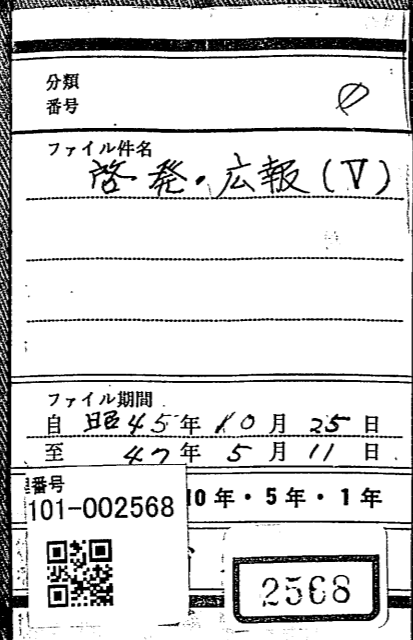 分類
番号
ファイル件名
啓発・広報(Ⅴ)
ファイル期間
自 昭45年10月25日
至 47年5月11日
番号
101-002568
10年・5年・1年
2568